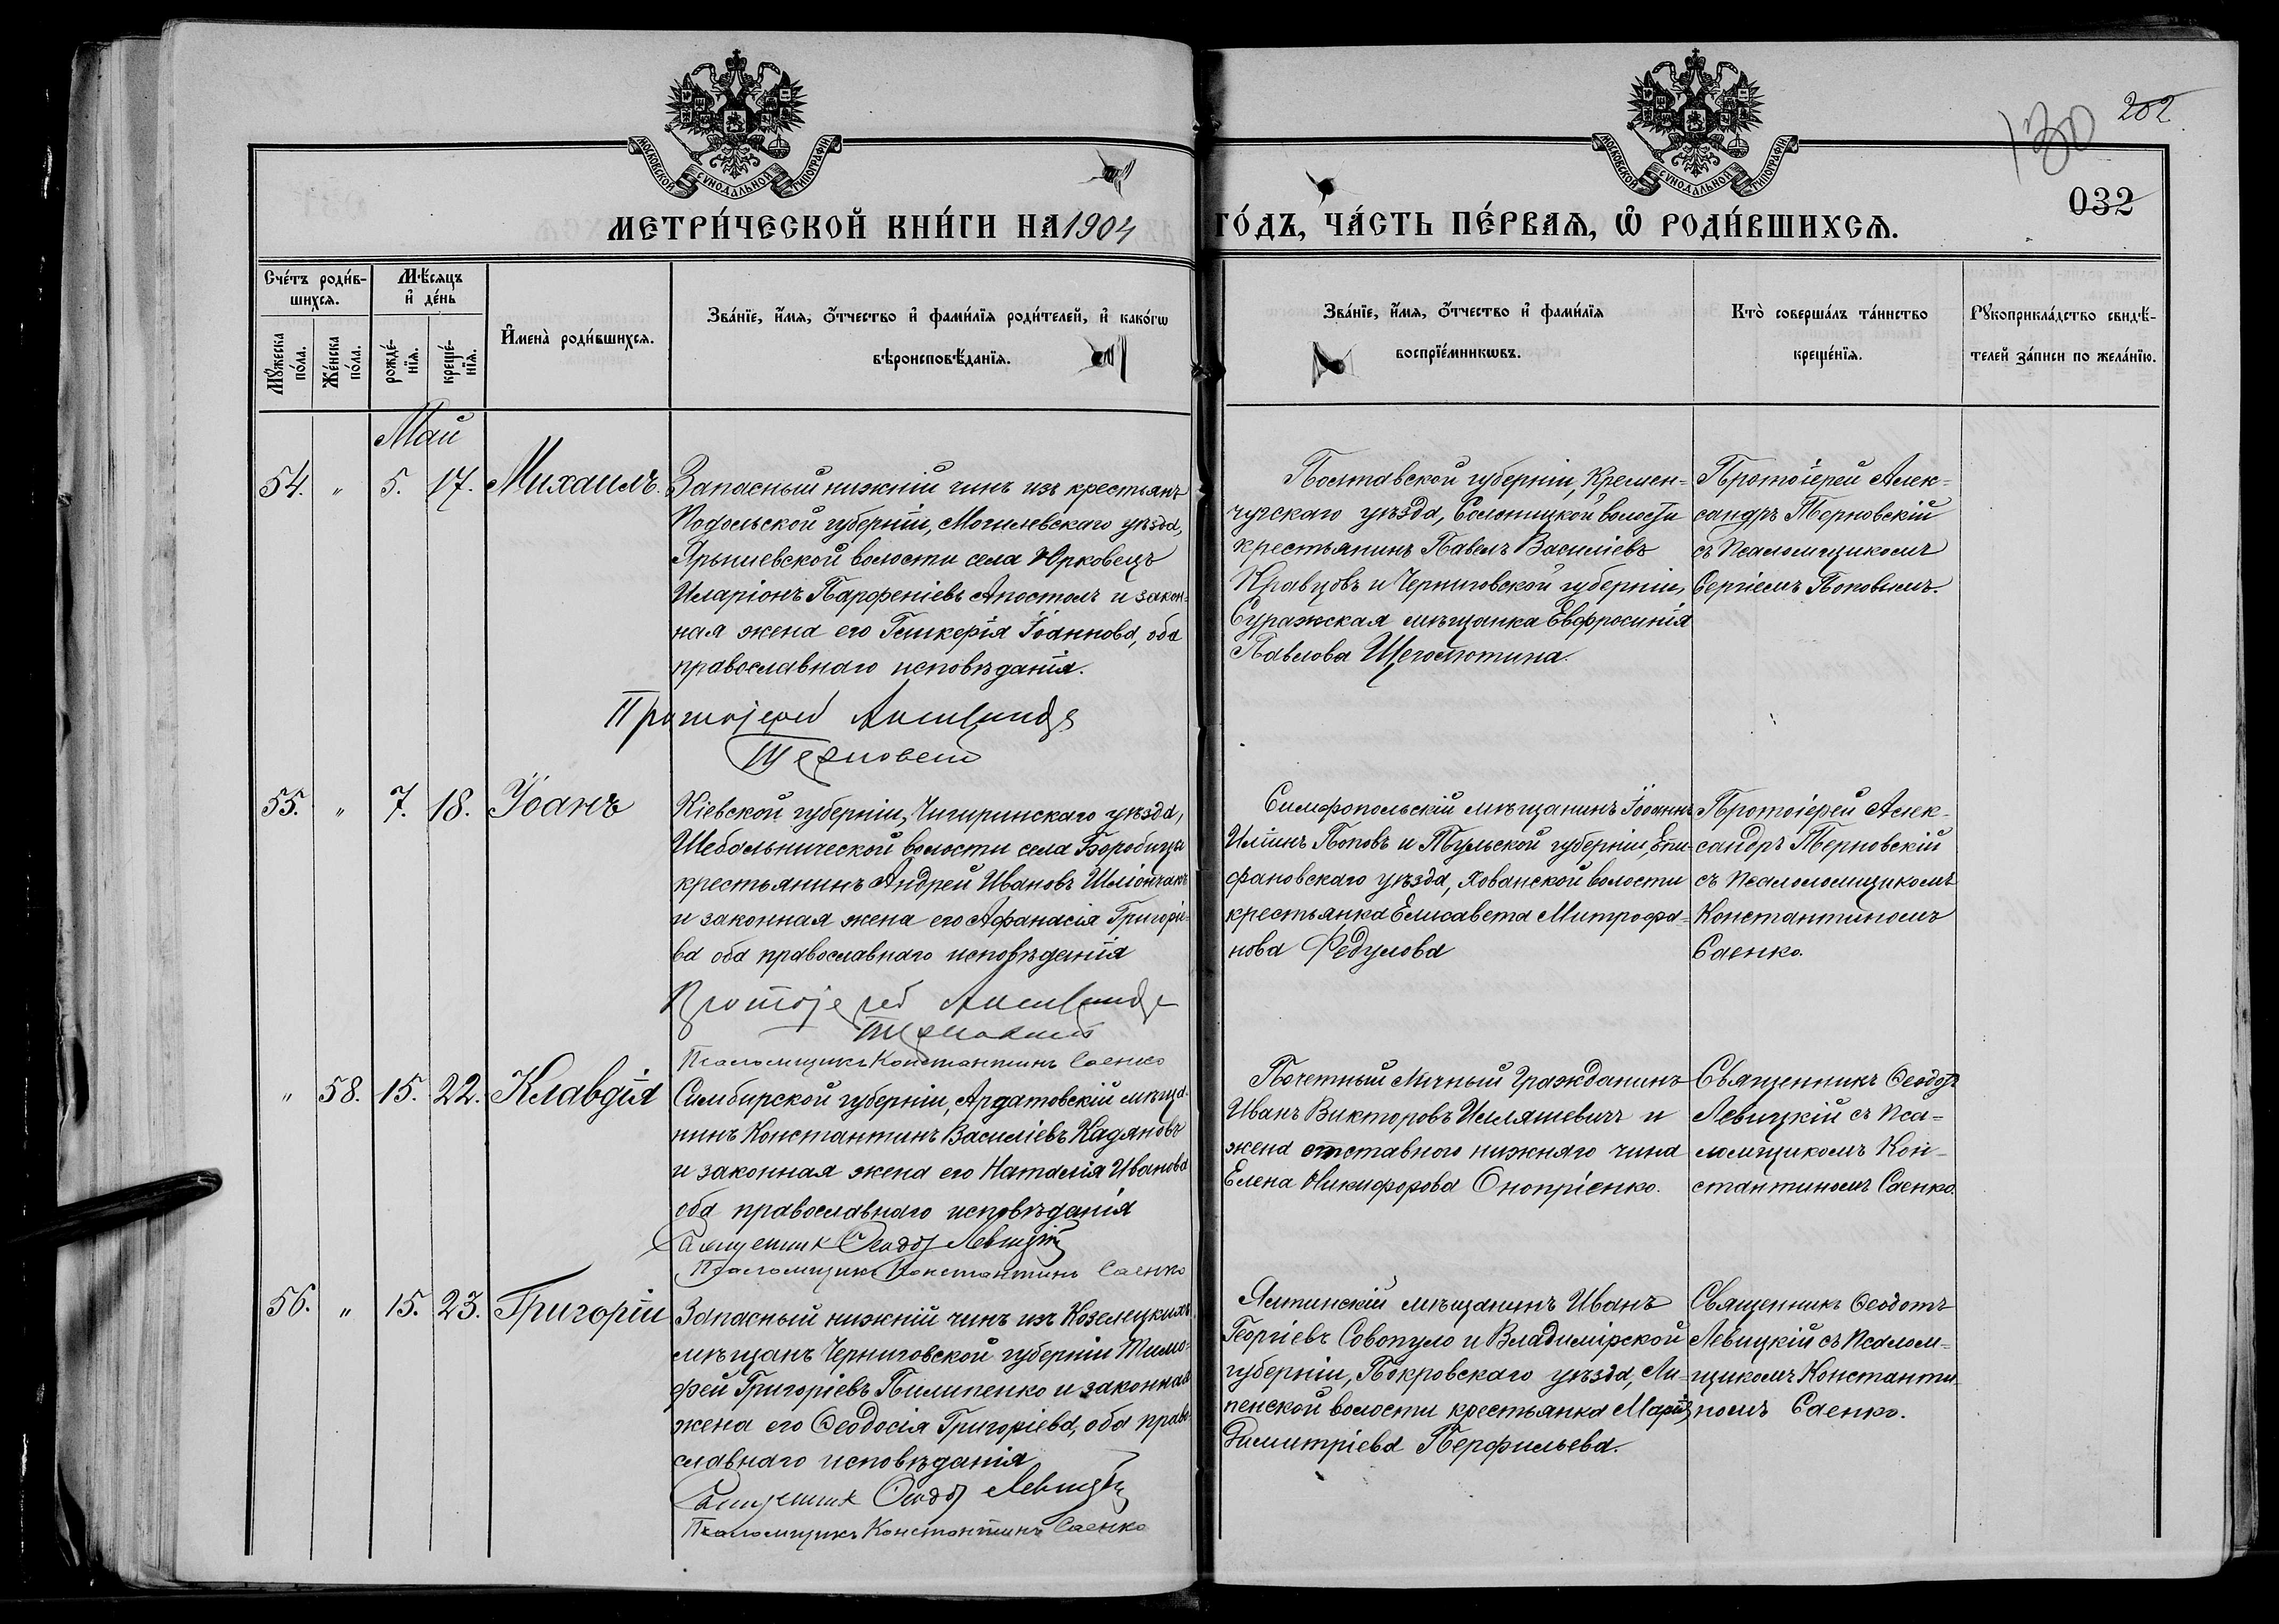 МОСКОВСКОЙ СУНОДАЛЬНОЙ ТИПОГРАФІИ
МОСКОВСКОЙ СУНОДАЛЬНОЙ ТИПОГРАФІИ
130
202
032
МЕТРИ́ЧЕСКОЙ КНИ́ГИ НА 1904 ГО́ДЪ, ЧА́СТЬ ПЕ́РВАѦ, Ѡ҆ РОДИ́ВШИХСѦ.
Сче́тъ роди́в-
шихсѧ.
Мꙋ́жеска
по́ла.
Же́нска
по́ла.
Мѣ́сѧцъ
и҆ де́нь
рожде́-
нїѧ.
креще́-
нїѧ.
И҆мена̀ роди́вшихсѧ.
Зва́нїе, и҆́мѧ, ѻ҆́тчество и҆ фами́лїѧ роди́телей, и҆ како́гѡ
вѣроисповѣ́данїѧ.
Зва́нїе, и҆́мѧ, ѻ҆́тчество и҆ фами́лїѧ
воспрїе́мникѡвъ.
Кто̀ соверша́лъ та́инство
креще́нїѧ.
Рꙋкоприкла́дство свидѣ́-
телей за́писи по жела́нїю.
Май
54. " 5. 17. Михаилъ.
Запасный нижній чинъ изъ крестьянъ
Подольской губерніи, Могилевскаго уѣзда,
Ярышевской волости села Юрковецъ
Иларіонъ Парфеніевъ Апостолъ и закон-
ная жена его Гликерія Іоаннова, оба
православнаго исповѣданія.
Протоіерей Александръ
Терновскій
Полтавской губерніи, Кремен-
чугскаго уѣзда, Солоницкой волости
крестьянинъ Павелъ Василіевъ
Кравцовъ и Черниговской губерніи,
Суражская мѣщанка Евфросинія
Павлова Щеголютина.
Протоіерей Алек-
сандръ Терновскій
съ псаломщикомъ
Сергіемъ Поповымъ.
55. " 7. 18. Іоанъ
Кіевской губерніи, Чигиринскаго уѣзда,
Шебольнической волости села Боробицы
крестьянинъ Андрей Ивановъ
и законная жена его Афанасія Григорі-
ва оба православнаго исповѣданія
Протоіерей Александръ
Терновскій
Псаломщикъ Константинъ Саенко
Симферопольскій мѣщанинъ Іоаннъ
Иліинъ Поповъ и Тульской губерніи, Епи-
фановскаго уѣзда, Хованской волости
крестьянка Елисавета Митрофа-
нова Федулова
Протоіерей Алек-
сандръ Терновскій
съ псаломщикомъ
Константиномъ
Саенко.
" 58. 15. 22. Клавдія
Симбирской губерніи, Ардатовскій мѣща-
нинъ Константинъ Василіевъ Кадяновъ
и законная жена его Наталія Иванова
оба православнаго исповѣданія
Священникъ Ѳеодотъ Левицкій
Псаломщикъ Константинъ Саенко
Почетный Личный Гражданинъ
Иванъ Викторовъ Иляшевичъ и
жена отставного нижняго чина
Елена Никифорова Онопріенко.
Священникъ Ѳеодотъ
Левицкій съ пса-
ломщикомъ Кон-
стантиномъ Саенко.
56. " 15. 23. Григорій
Запасный нижній чинъ изъ Козелецкихъ
мѣщанъ Черниговской губерніи Тимо-
фей Григоріевъ Пилипенко и законная
жена его Ѳеодосія Григоріева, оба право-
славнаго исповѣданія
Священникъ Ѳеодотъ Левицкій
Псаломщикъ Константинъ Саенко
Ялтинскій мѣщанинъ Иванъ
Георгіевъ Совопуло и Владимірской
губерніи, Покровскаго уѣзда, Ли-
пенской волости крестьянка Марія
Димитріева Перфильева.
Священникъ Ѳеодотъ
Левицкій съ псалом-
щикомъ Константи-
номъ Саенко.